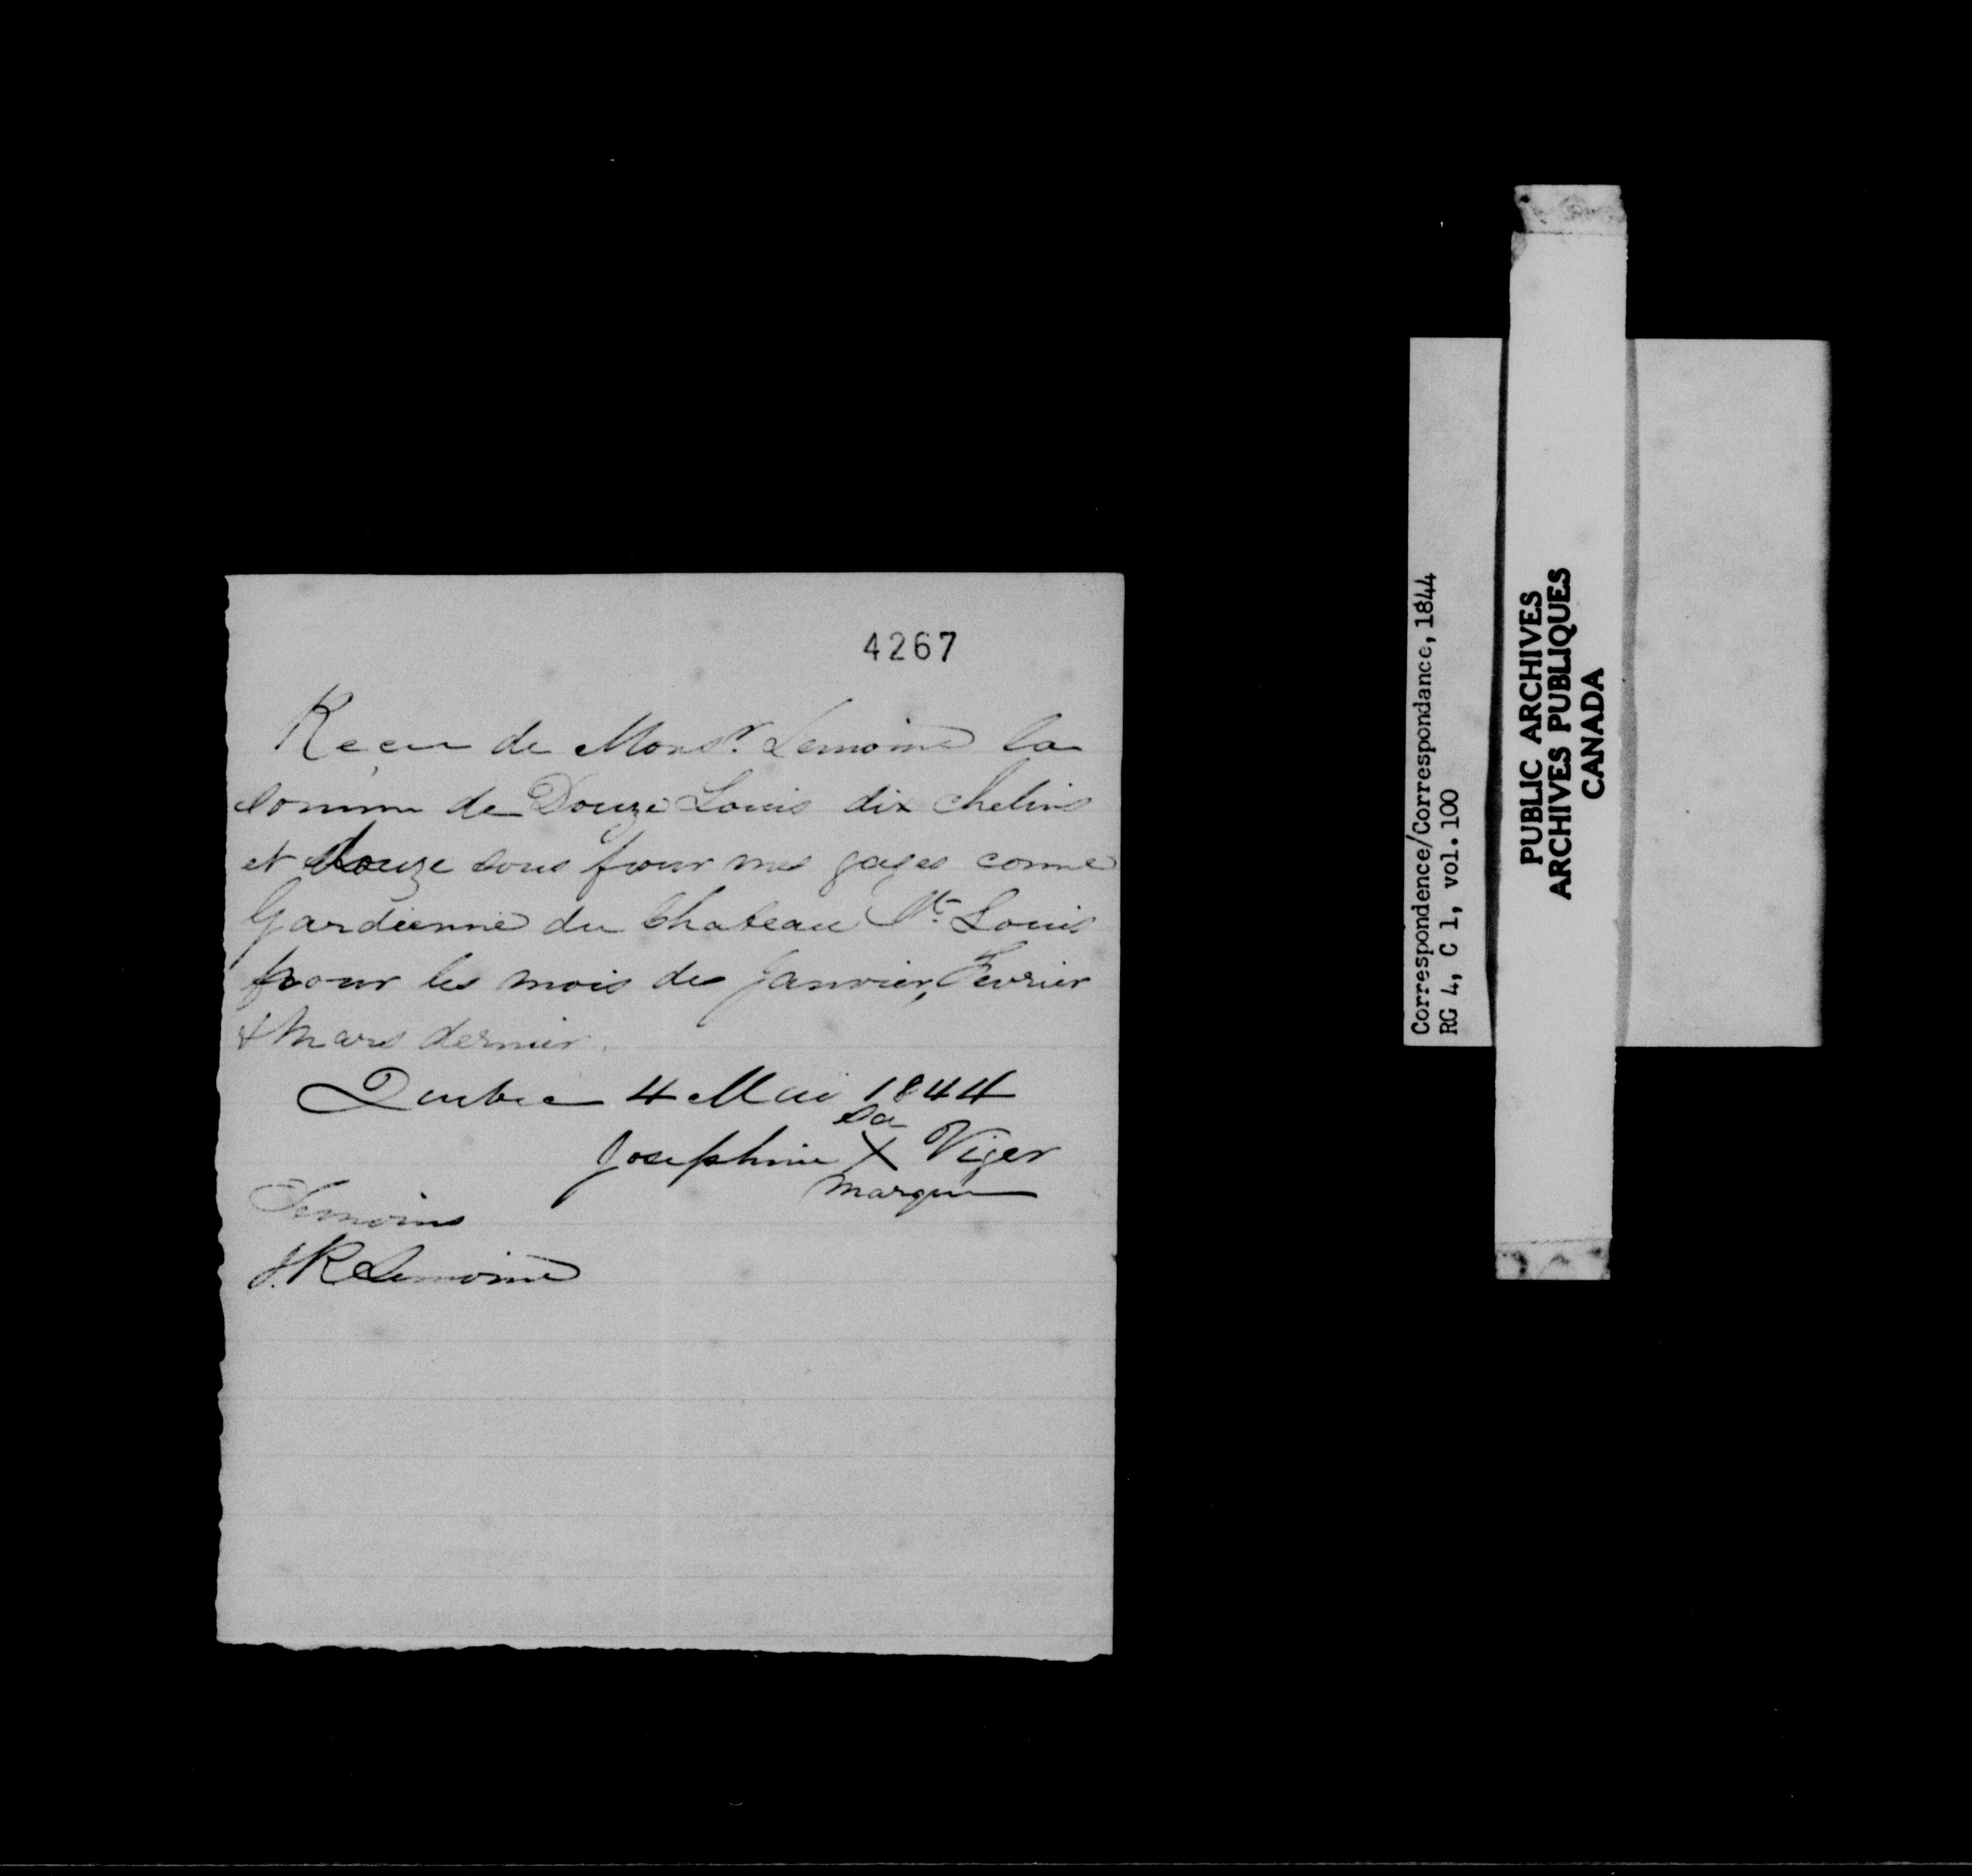 4267
Reçu de Monsr. Lemoine la
somme de Douze Louis dix chelins
et douze sous pour mes gages comme
Gardienne du Chateau St. Louis
pour les mois de Janvier, Fevrier
& Mars dernier.
Quebec 4 Mai 1844
sa
Josephine X Viger
marque
Temoins
J. R Lemoine
Correspondence/Correspondance, 1844
RG 4, C 1, vol. 100
PUBLIC ARCHIVES
ARCHIVES PUBLIQUES
CANADA